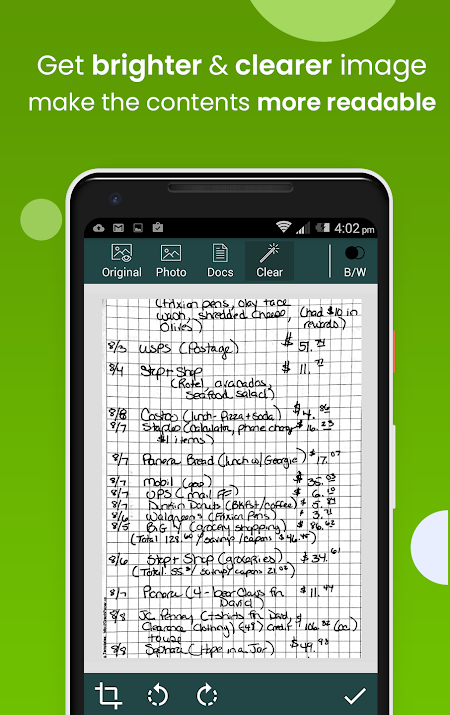 Get brighter & clearer image
make the contents more readable
4:02 pm
Original Photo Docs Clear B/W
(frixion pens, clay face
wash, shredded cheese, (had $10 in
Olives) rewards)
8/3 USPS (Postage) $ 51.
8/4 Stop + Shop $ 11.
(Rotel, avacados,
seafood salad)
8/8 Costco (lunch-Pizza + soda) $4.
8/7 Staples (calculator, phone $16.23
$1 items)
8/7 Panera Bread (lunch w/ Georgie) $17.07
8/7 Mobil (gas) $35.03
8/7 UPS (mail $6.10
8/7 Dunkin Donuts (Bkfst/coffee) $5.
8/6 Walgreens (Frixion Pens) $3.71
8/5 Big Y (grocery shopping) $86.62
(Total 128.60 / savings/coupons $
8/6 Stop + Shop (groceries) $34.61
(Total: 55 / savings/coupons 21.
8/7 Panera (4 - bear claws for $11.44
David)
8/8 JC Penney (t-shirts for David,
Clearance clothing) credit $106.
8/8 Sephora (Hope in a Jar) $49.